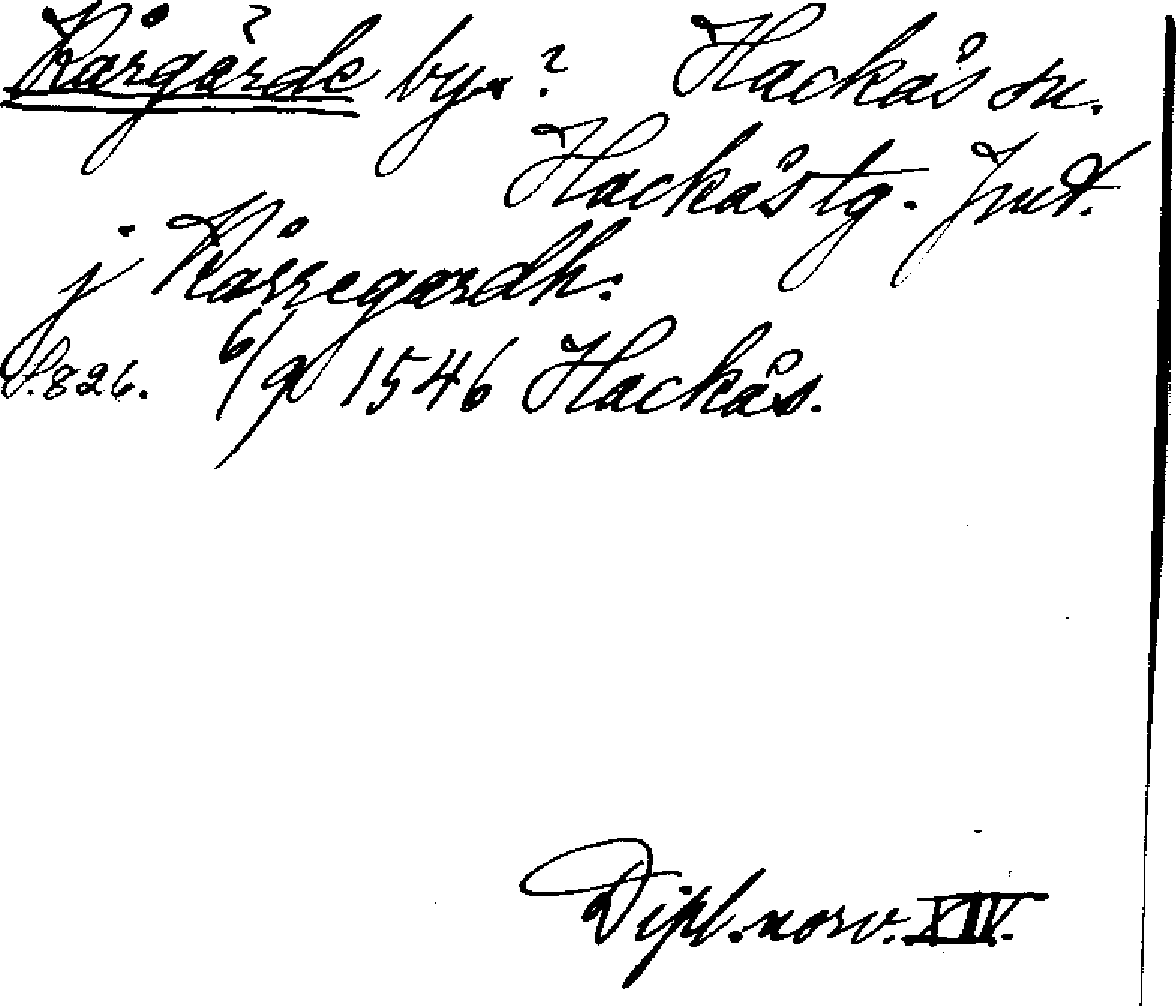 Kårgärde by.? Hackås sn.
Hackås tg. Jmt.
j Kårregærdh.
S. 826. 6/9 1546 Hackås.
Dipl. norv. XIV.